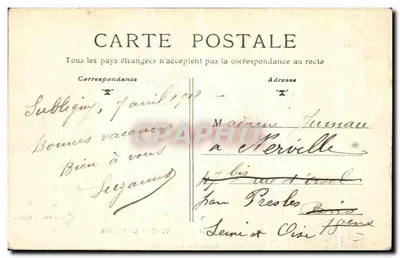 CARTE POSTALE
Tous les pays étrangers n'acceptent pas la correspondance au recto
Correspondance
Adresse
Subligny, 7 avril
Bonnes vacances
Bien à vous
Suzanne
Madame
à Nerville
bis rue d'
par Presles
Paris
Seine et Oise